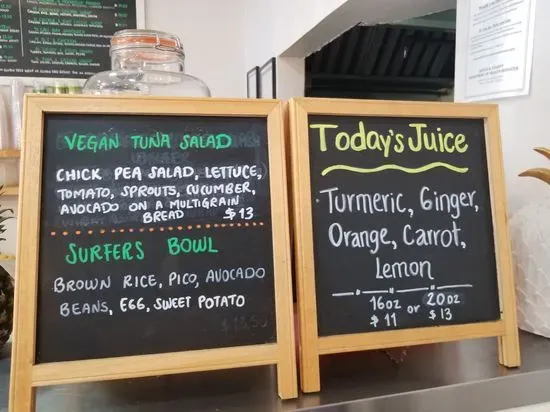 VEGAN TUNA SALAD
CHICK PEA SALAD, LETTUCE,
TOMATO, SPROUTS, CUCUMBER,
AVOCADO ON A MULTIGRAIN
BREAD $13
SURFERS BOWL
BROWN RICE, PICO, AVOCADO
BEANS, EGG, SWEET POTATO
Today's Juice
Turmeric, Ginger,
Orange, Carrot,
Lemon
16oz or 20oz
$11 $13